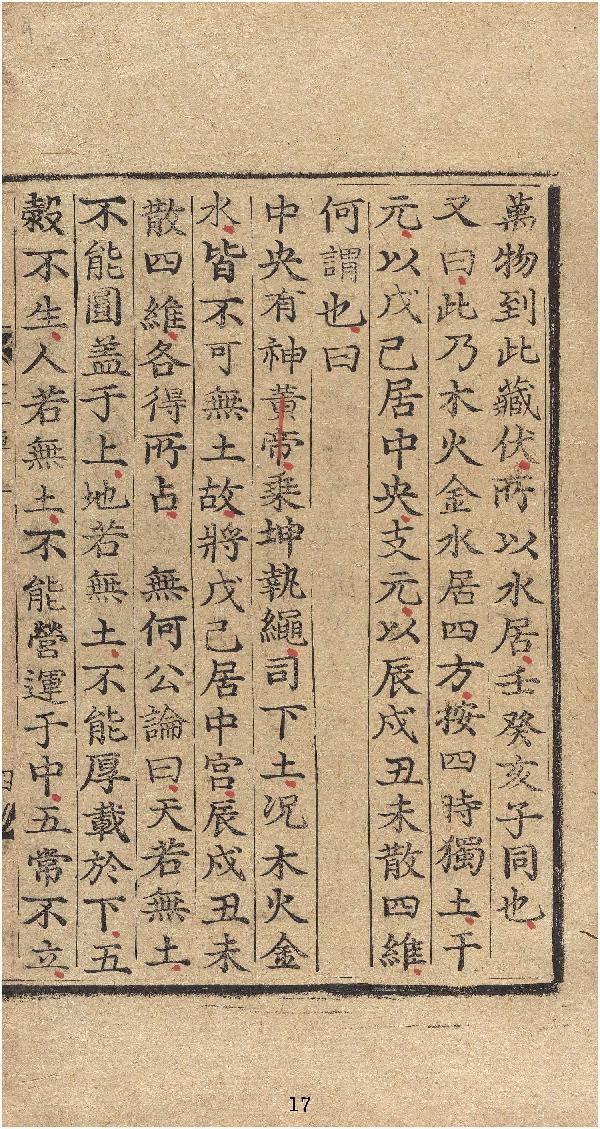 萬物到此藏伏所以水居壬癸亥子同也
又曰此乃木火金水居四方按四時獨土干
元以戊己居中央支元以辰戌丑未散四維
何謂也曰
中央有神黃帝乘坤執繩司下土况木火金
水皆不可無土故將戊己居中宮辰戌丑未
散四維各得所占 無何公論曰天若無土
不能圓蓋于上地若無土不能厚載於下五
穀不生人若無土不能營運于中五常不立
17